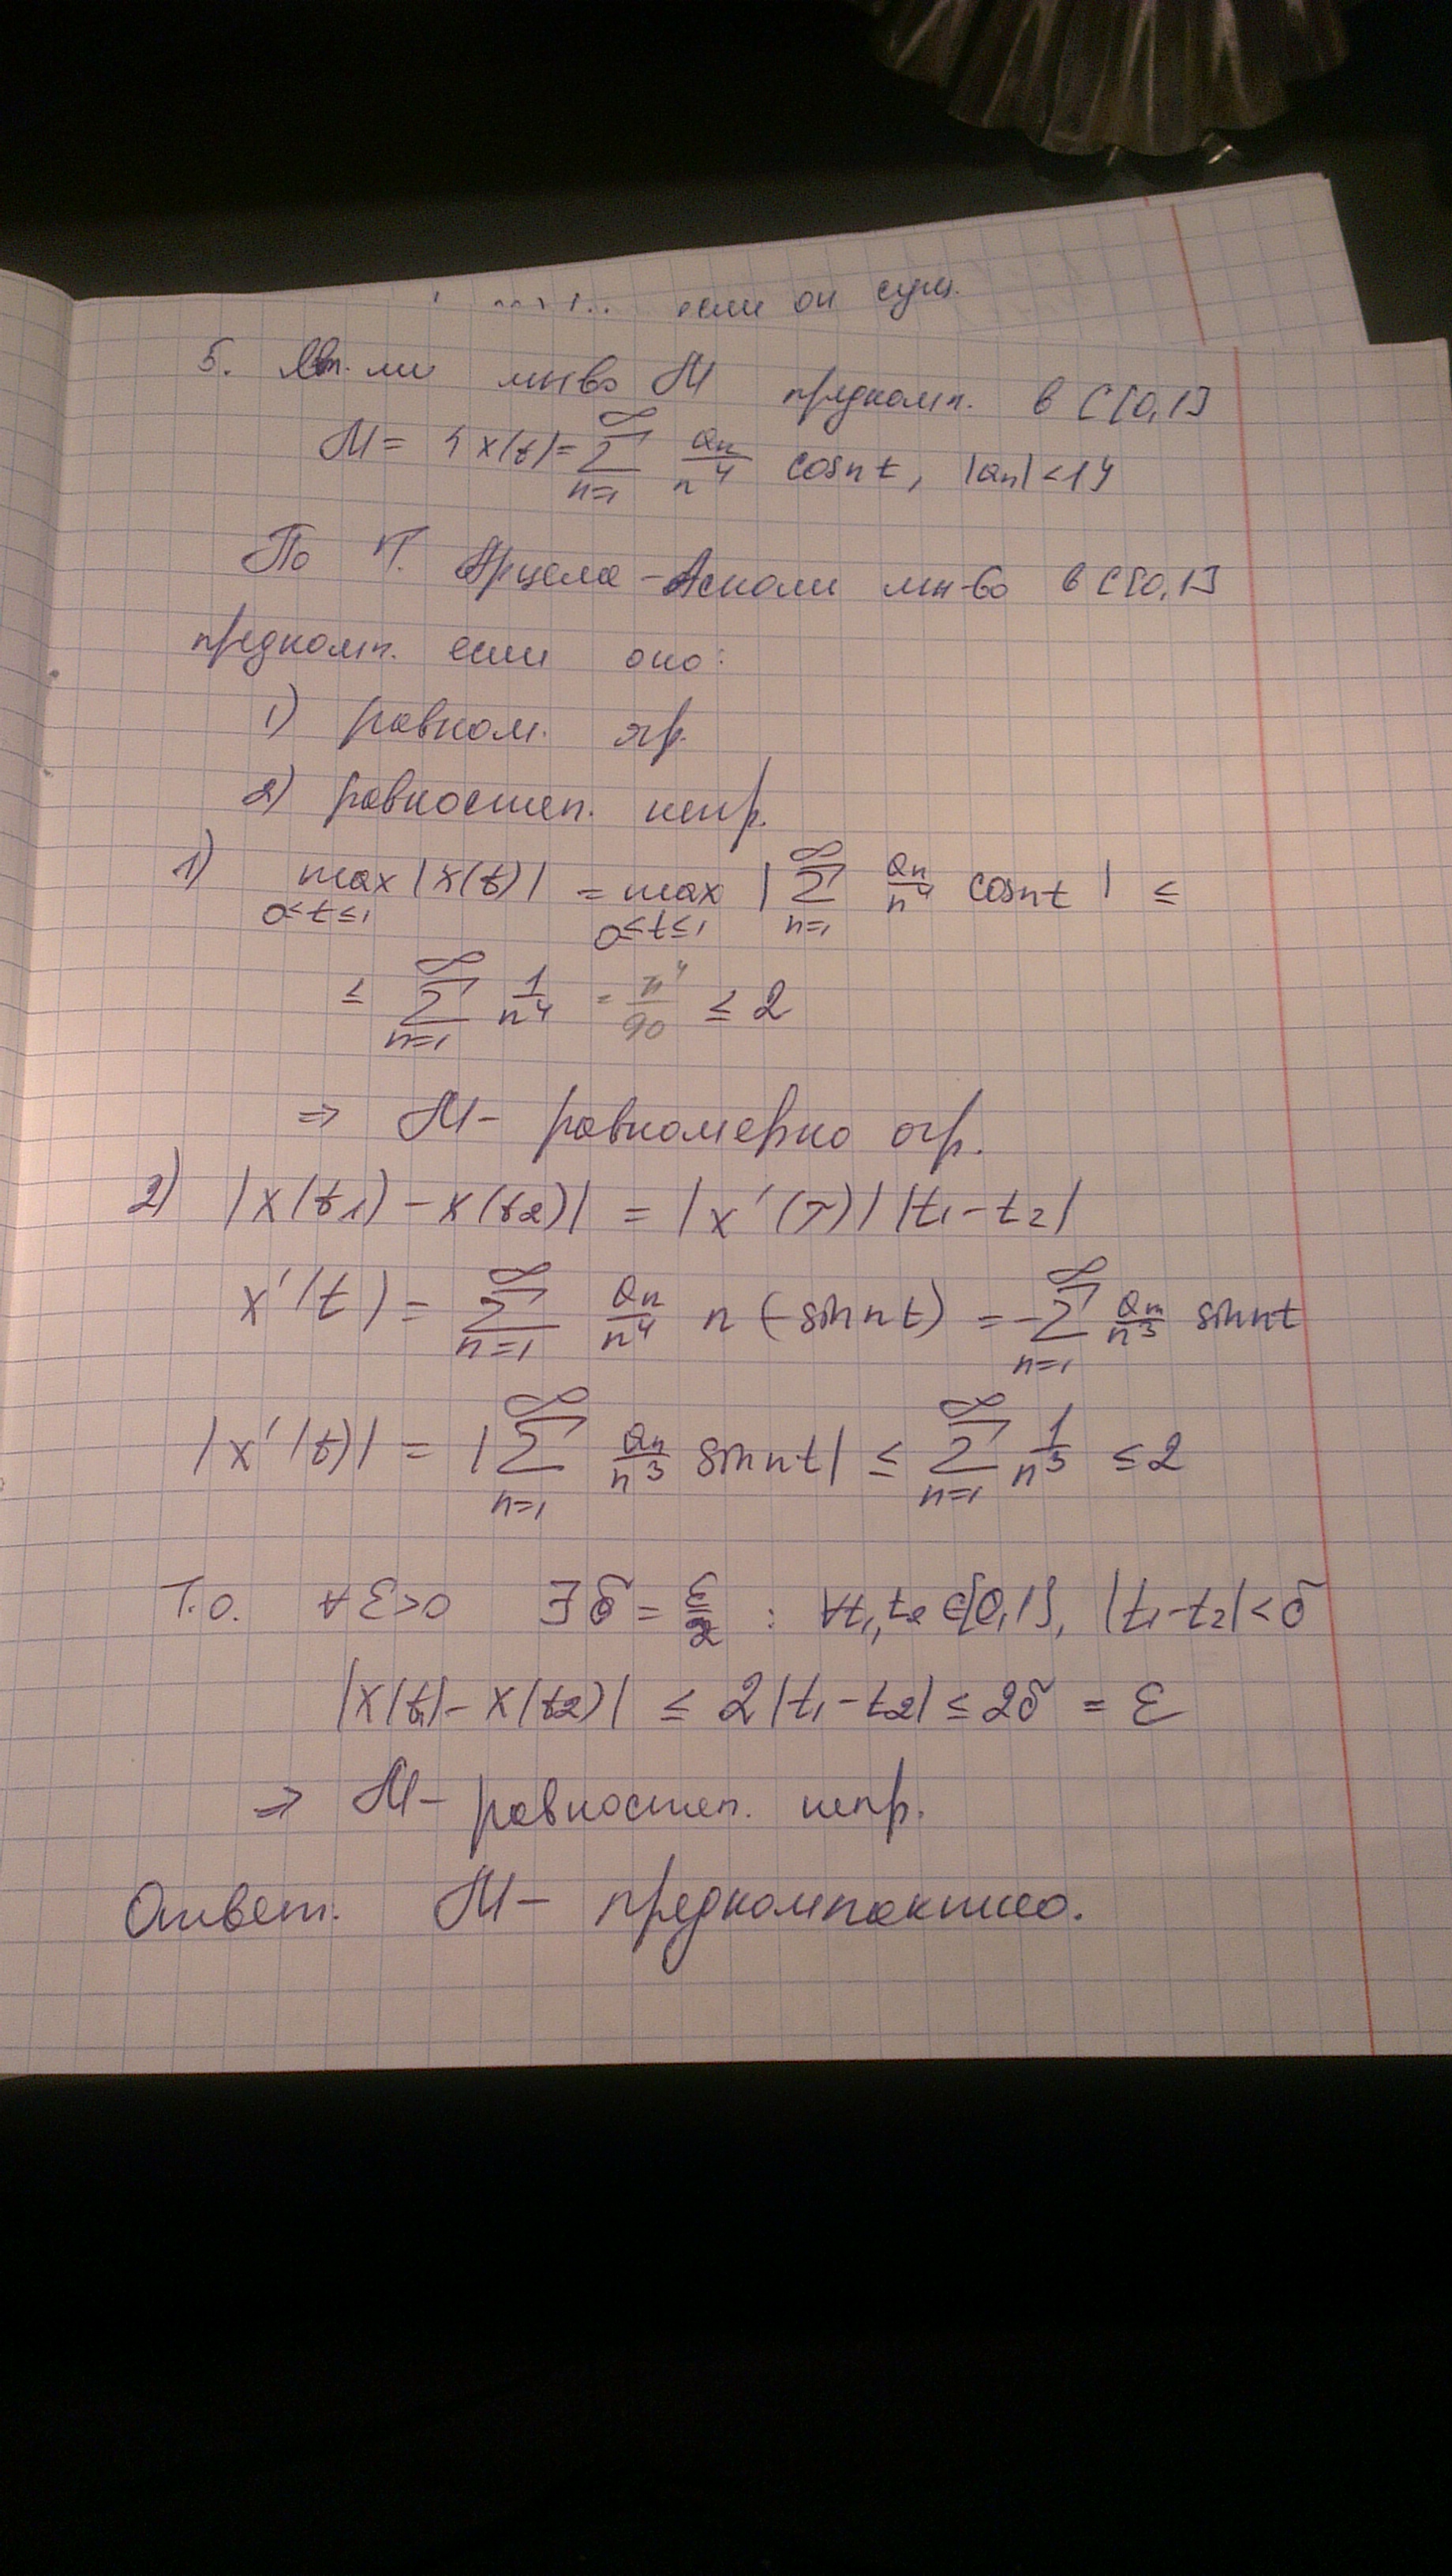 если он сущ.
5. Явл. ли мн-во M предкомп. в C[0,1]
M = { x(t) = ∑_{n=1}^{∞} a_n/n^4 cos nt, |a_n| < 1 }
По т. Арцела - Асколи мн-во в C[0,1]
предкомп. если оно:
1) равном. огр.
2) равностеп. непр.
1) max_{0≤t≤1} |x(t)| = max_{0≤t≤1} | ∑_{n=1}^{∞} a_n/n^4 cos nt | ≤
≤ ∑_{n=1}^{∞} 1/n^4 = π^4/90 ≤ 2
⇒ M - равномерно огр.
2) |x(t1) - x(t2)| = |x'(τ)| |t1 - t2|
x'(t) = ∑_{n=1}^{∞} a_n/n^4 n (-sin nt) = -∑_{n=1}^{∞} a_n/n^3 sin nt
|x'(t)| = | ∑_{n=1}^{∞} a_n/n^3 sin nt | ≤ ∑_{n=1}^{∞} 1/n^3 ≤ 2
Т.о. ∀ε>0 ∃δ = ε/2 : ∀t1, t2 ∈ [0,1], |t1 - t2| < δ
|x(t1) - x(t2)| ≤ 2|t1 - t2| ≤ 2δ = ε
⇒ M - равностеп. непр.
Ответ. M - предкомпактно.